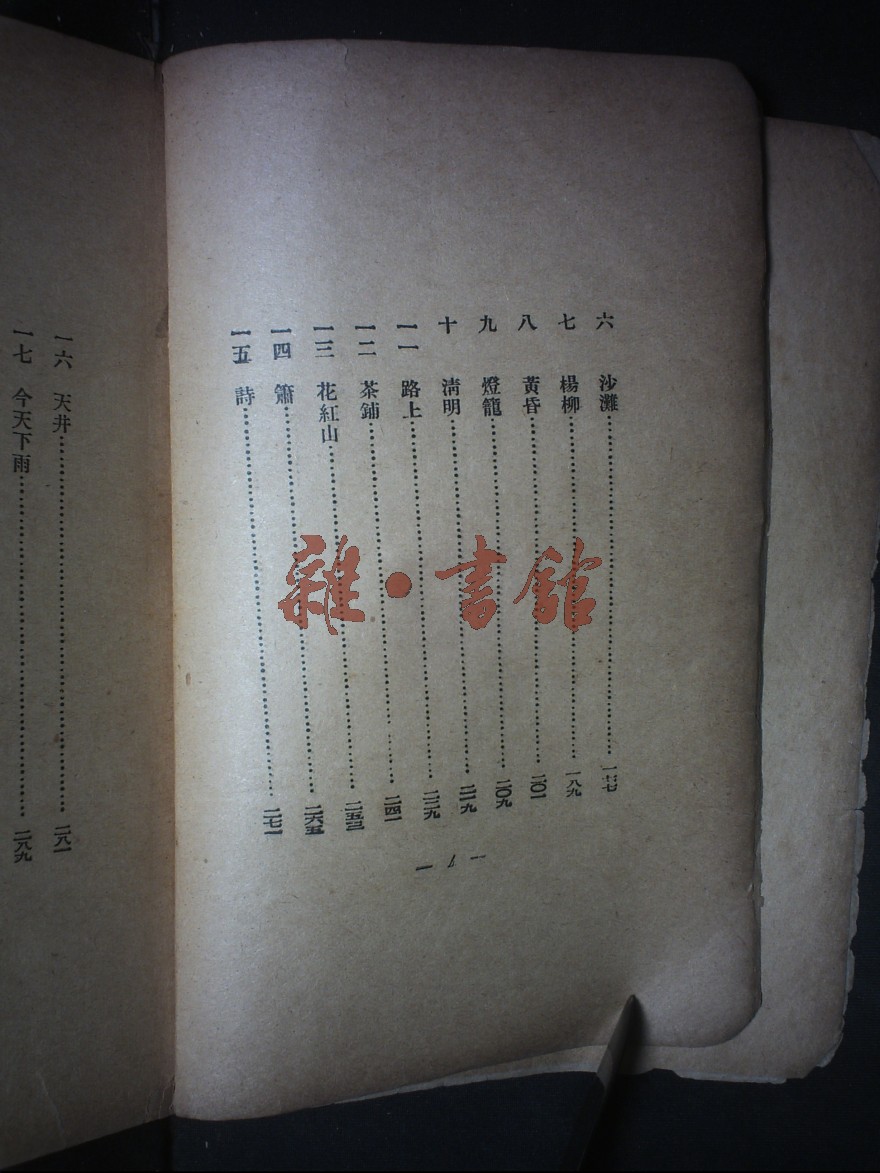 六　沙灘………一七七
七　楊柳………一八九
八　黃昏………二〇一
九　燈籠………二〇九
十　淸明………二一九
一一　路上………二二九
一二　茶鋪………二四一
一三　花紅山………二五三
一四　簫………二六五
一五　詩………二七一
一六　天井………二八一
一七　今天下雨………二八九
雜·書館